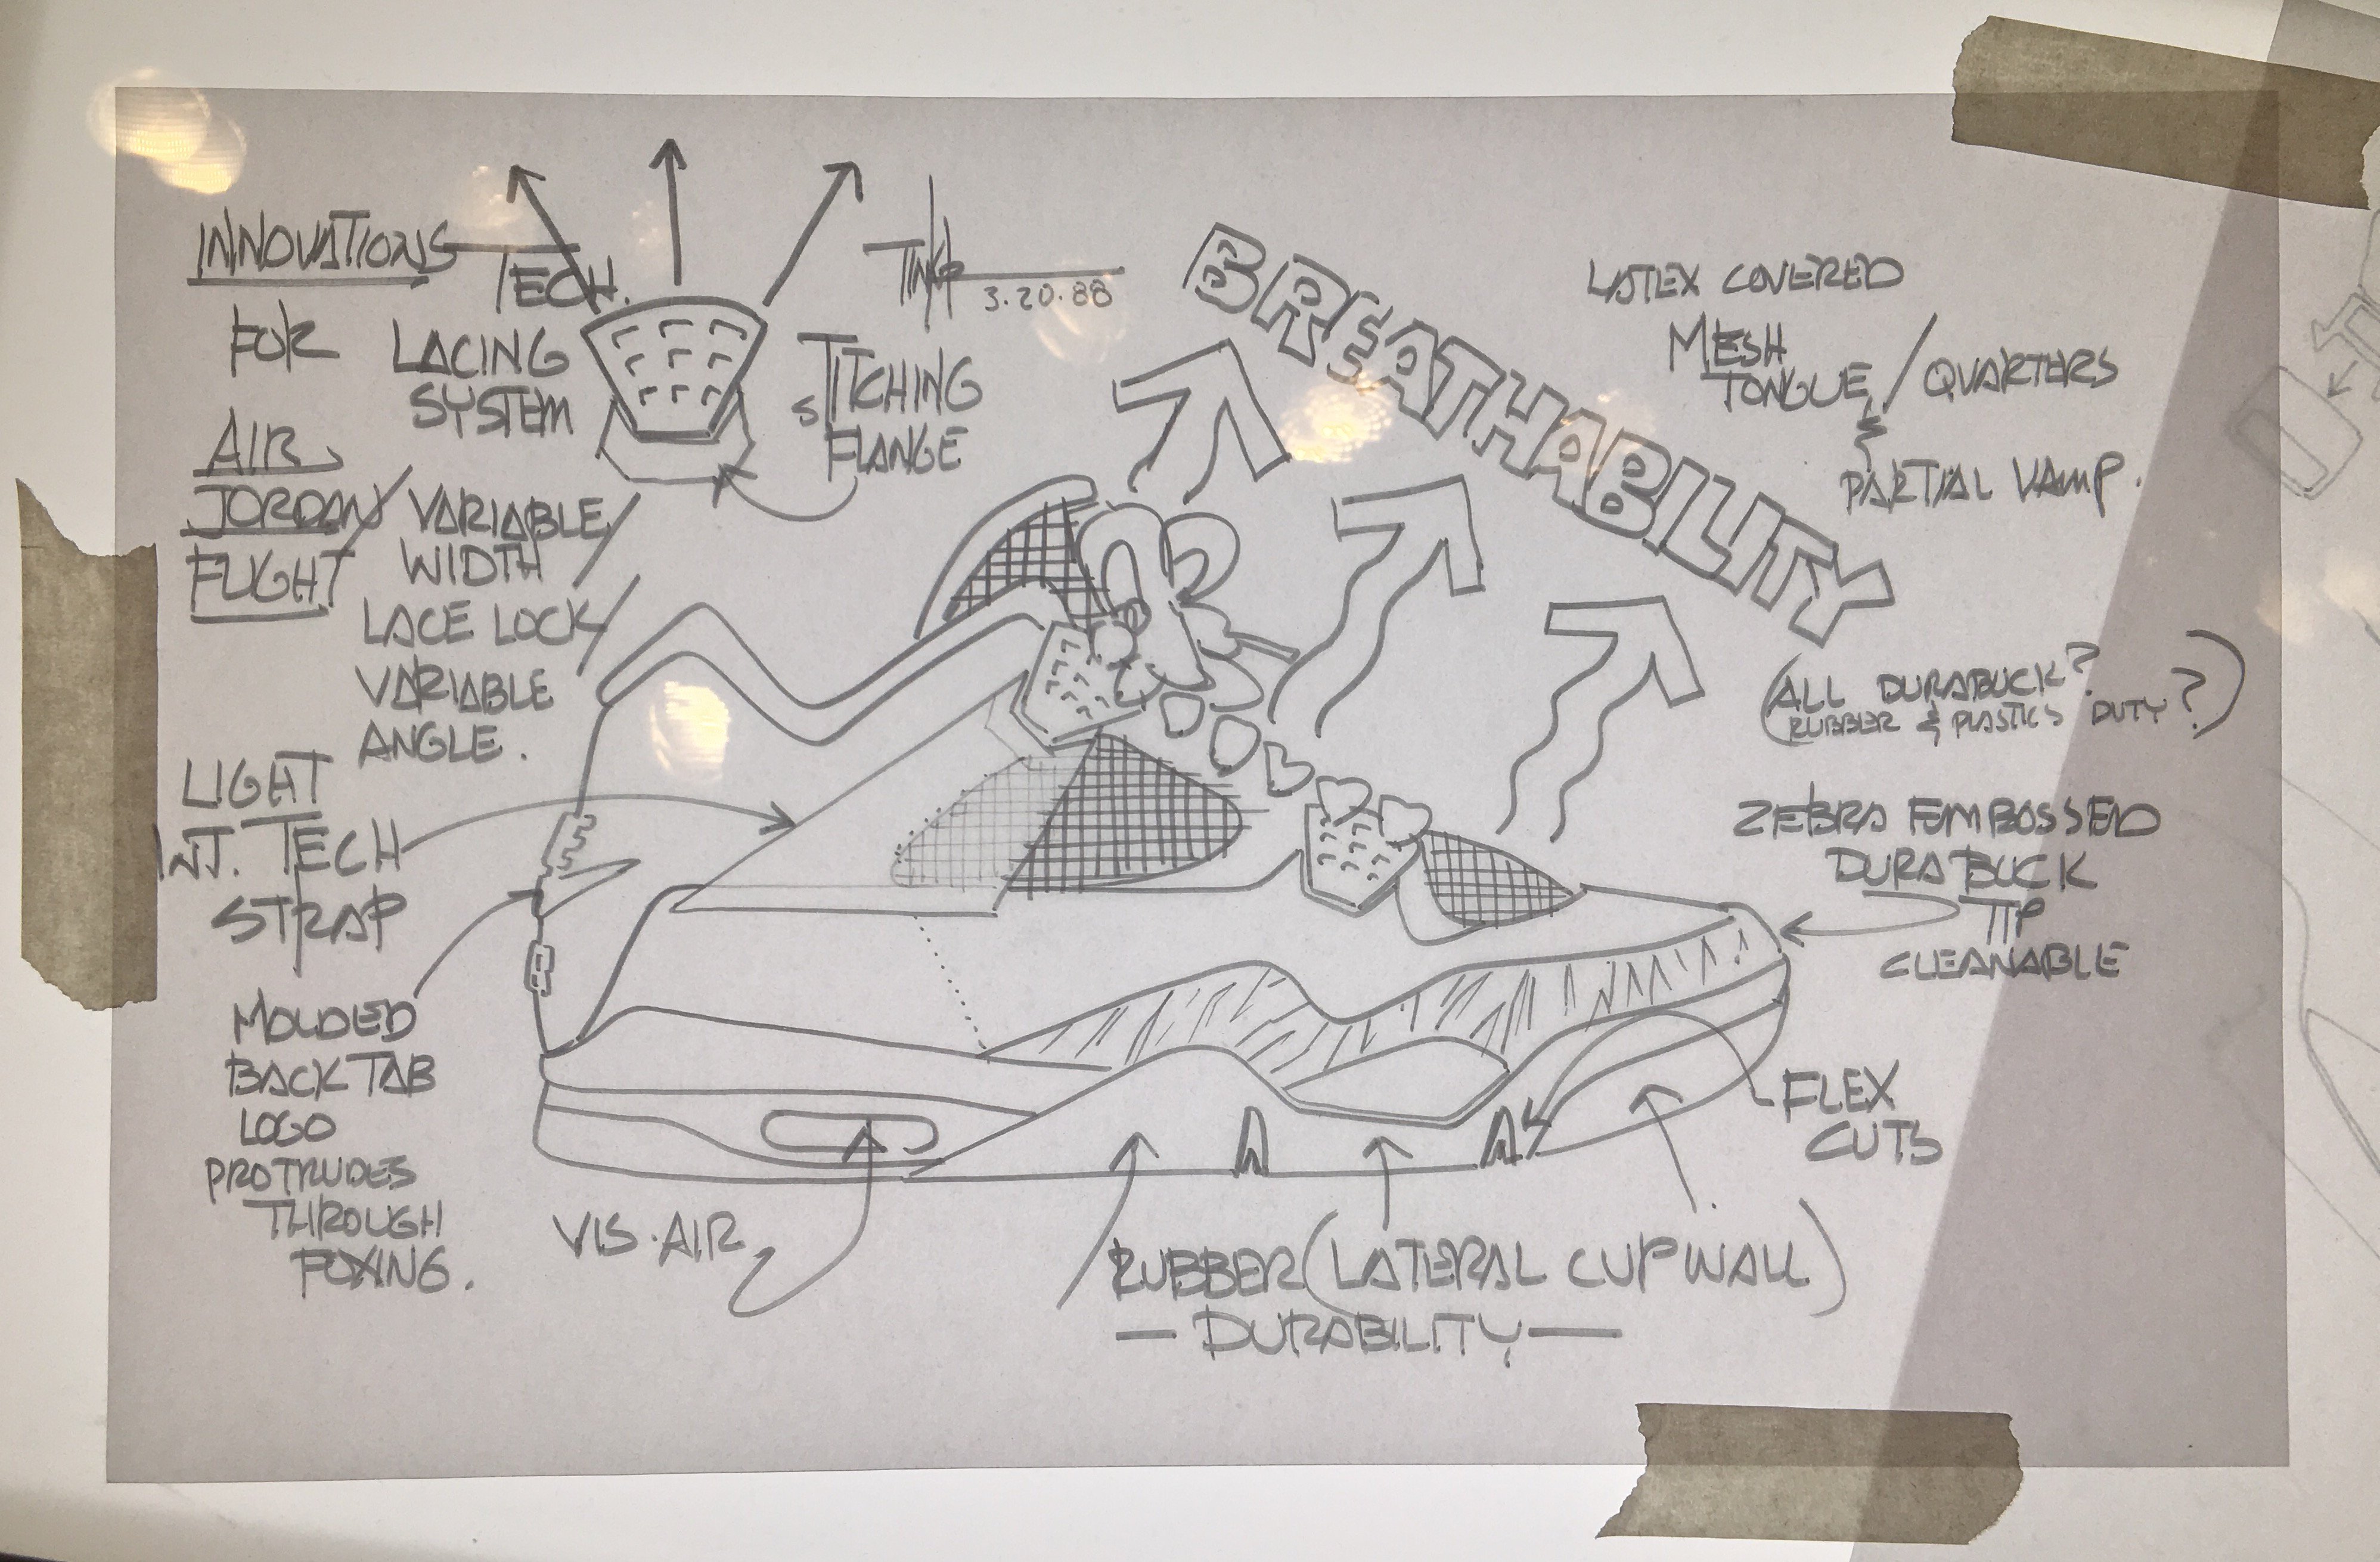 INNOVATIONS
FOR
AIR
JORDAN/
FLIGHT
TECH.
LACING
SYSTEM
VARIABLE/
WIDTH
LACE LOCK/
VARIABLE
ANGLE.
3.20.88
STITCHING
FLANGE
BREATHABILITY
LATEX COVERED
MESH
TONGUE / QUARTERS
&
PARTIAL VAMP.
(ALL DURABUCK?
RUBBER & PLASTICS DUTY?)
ZEBRA EMBOSSED
DURABUCK
TIP
CLEANABLE
LIGHT
INJ. TECH
STRAP
MOLDED
BACK TAB
LOGO
PROTRUDES
THROUGH
FOXING.
VIS. AIR
FLEX
CUTS
RUBBER (LATERAL CUPWALL)
— DURABILITY —